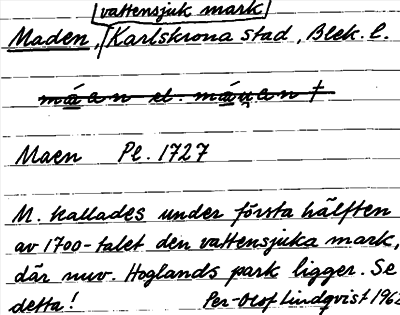 vattensjuk mark
Maden, Karlskrona stad, Blek. l.
Maen Pl. 1727
M. kallades under första hälften
av 1700-talet den vattensjuka mark,
där nuv. Hoglands park ligger. Se
detta! Per-Olof Lindqvist 1962